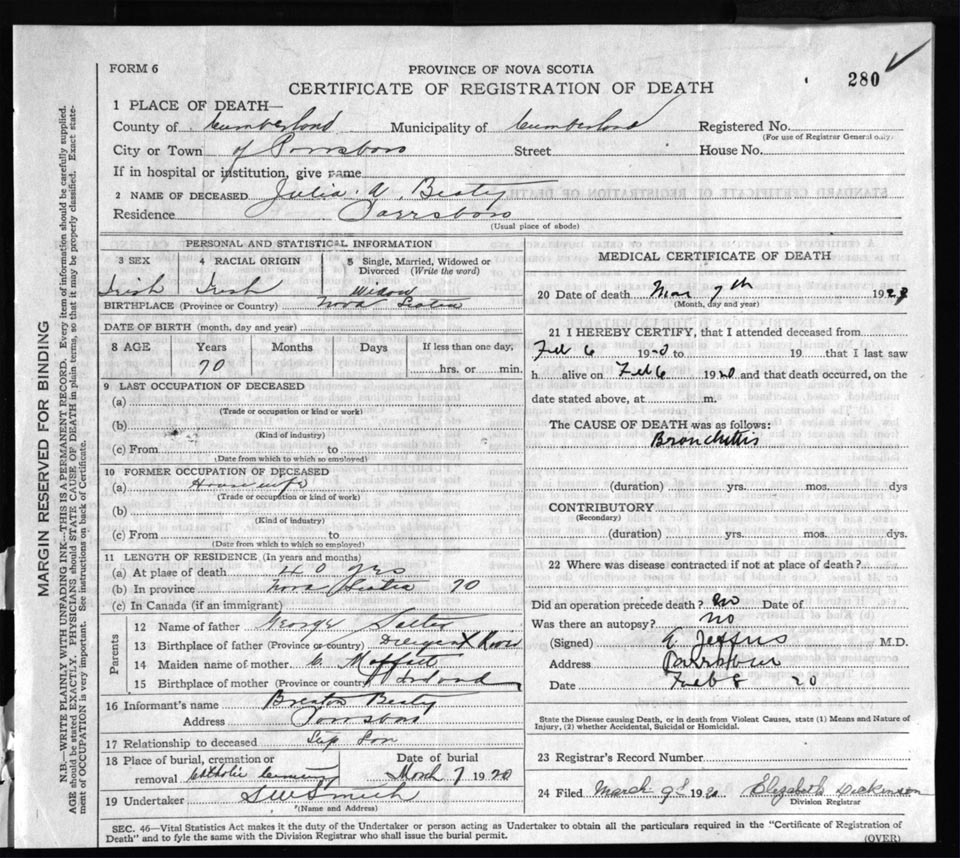 FORM 6
PROVINCE OF NOVA SCOTIA
280
CERTIFICATE OF REGISTRATION OF DEATH
1 PLACE OF DEATH—
County of Cumberland Municipality of Cumberland Registered No.
(For use of Registrar General only.)
City or Town of Parrsboro Street House No.
If in hospital or institution, give name
2 NAME OF DECEASED Julia A. Beaty
Residence Parrsboro
(Usual place of abode)
PERSONAL AND STATISTICAL INFORMATION
3 SEX 4 RACIAL ORIGIN 5 Single, Married, Widowed or Divorced (Write the word)
Irish Irish Widow
BIRTHPLACE (Province or Country) Nova Scotia
DATE OF BIRTH (month, day and year)
8 AGE Years Months Days If less than one day,
70 hrs. or min.
9 LAST OCCUPATION OF DECEASED
(a)
(Trade or occupation or kind or work)
(b)
(Kind of industry)
(c) From to
(Date from which to which so employed)
10 FORMER OCCUPATION OF DECEASED
(a) House wife
(Trade or occupation or kind of work)
(b)
(Kind of industry)
(c) From to
(Date from which to which so employed)
11 LENGTH OF RESIDENCE (In years and months)
(a) At place of death 40 yrs
(b) In province Nova Scotia 70
(c) In Canada (if an immigrant)
Parents
12 Name of father George
13 Birthplace of father (Province or country)
14 Maiden name of mother C. Moffatt
15 Birthplace of mother (Province or country)
16 Informant's name Beaty
Address Parrsboro
17 Relationship to deceased Step Son
18 Place of burial, cremation or removal Catholic Cemetery
Date of burial March 7 1920
19 Undertaker Smith
(Name and Address)
MEDICAL CERTIFICATE OF DEATH
20 Date of death Mar 7th 192
(Month, day and year)
21 I HEREBY CERTIFY, that I attended deceased from
Feb 6 1920 to 19 that I last saw
h alive on Feb 6 1920 and that death occurred, on the
date stated above, at m.
The CAUSE OF DEATH was as follows:
Bronchitis
(duration) yrs. mos. dys
CONTRIBUTORY
(Secondary)
(duration) yrs. mos. dys.
22 Where was disease contracted if not at place of death?
Did an operation precede death? no Date of
Was there an autopsy? no
(Signed) M.D.
Address Parrsboro
Date Feb 8 20
State the Disease causing Death, or in death from Violent Causes, state (1) Means and Nature of
Injury, (2) whether Accidental, Suicidal or Homicidal.
23 Registrar's Record Number
24 Filed March 9 1920 Elizabeth Dickinson
Division Registrar
SEC. 46—Vital Statistics Act makes it the duty of the Undertaker or person acting as Undertaker to obtain all the particulars required in the "Certificate of Registration of
Death" and to fyle the same with the Division Registrar who shall issue the burial permit.
(OVER)
MARGIN RESERVED FOR BINDING
N.B.—WRITE PLAINLY WITH UNFADING INK—THIS IS A PERMANENT RECORD. Every item of information should be carefully supplied.
AGE should be stated EXACTLY. PHYSICIANS should STATE CAUSE OF DEATH in plain terms, so that it may be properly classified. Exact statement of OCCUPATION is very important. See instructions on back of Certificate.